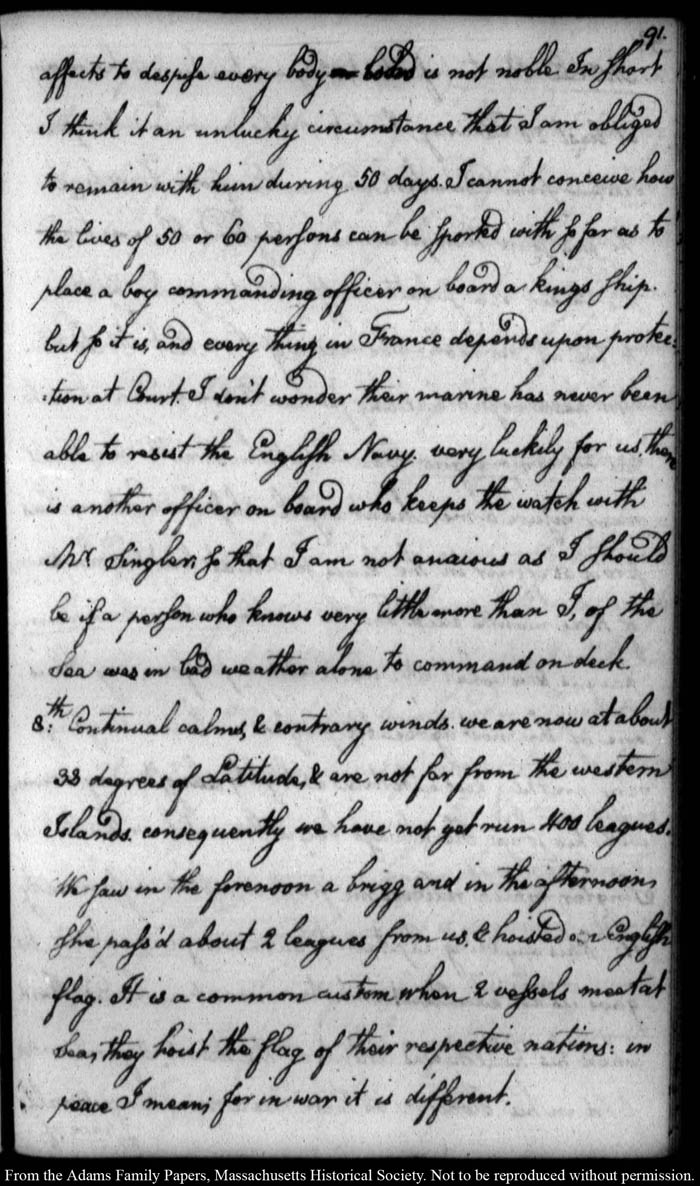 91.
affects to despise every body is not noble. In short
I think it an unlucky circumstance that I am obliged
to remain with him during 50 days. I cannot conceive how
the lives of 50 or 60 persons can be sported with so far as to
place a boy commanding officer on board a kings ship.
but so it is, and every thing in France depends upon protec:
:tion at Court. I don't wonder their marine has never been
able to resist the English Navy. very luckily for us, there
is another officer on board who keeps the watch with
Mr. Singler, so that I am not anxious as I should
be if a person who knows very little more than I, of the
Sea was in bad weather alone to command on deck.
8:th Continual calms, & contrary winds. we are now at about
38 degrees of Latitude, & are not far from the western
Islands. consequently we have not yet run 400 leagues.
We saw in the forenoon a brigg and in the afternoon,
she pass'd about 2 leagues from us, & hoisted an English
flag. It is a common custom when 2 vessels meet at
Sea, they hoist the flag of their respective nations: in
peace I mean; for in war it is different.
From the Adams Family Papers, Massachusetts Historical Society. Not to be reproduced without permission.